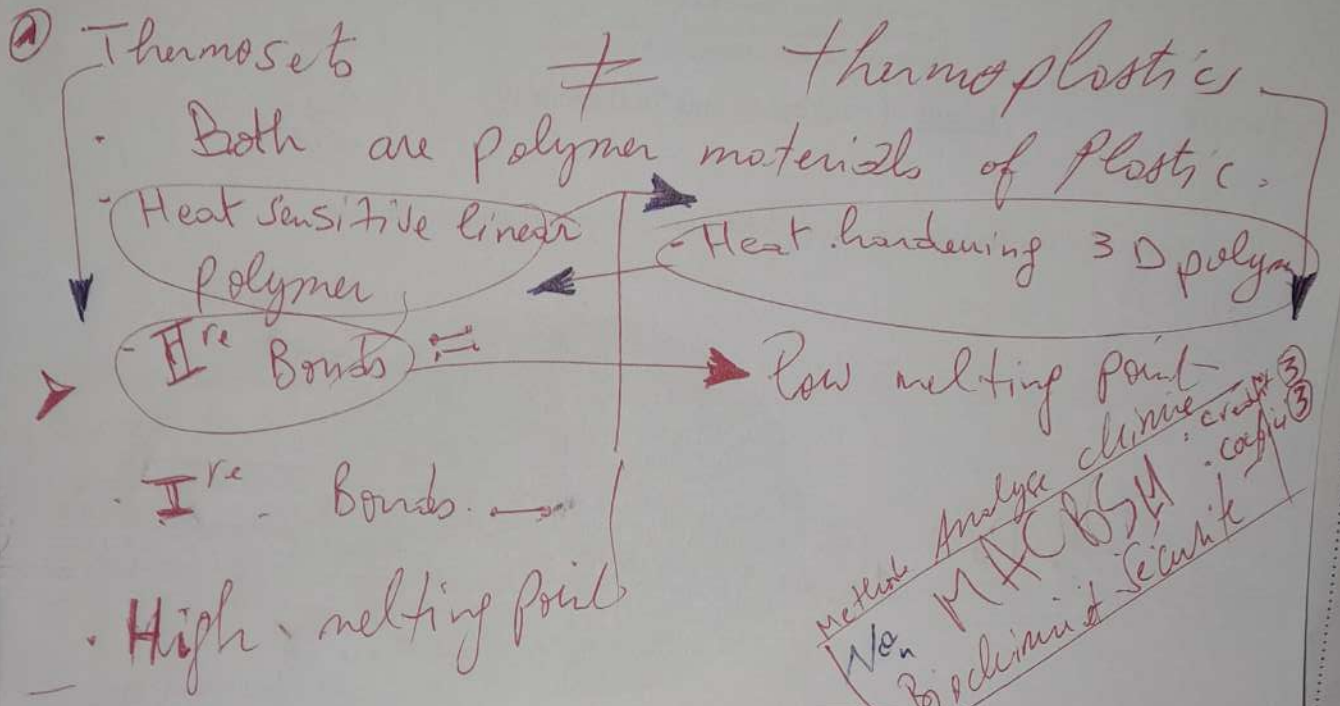 ① Thermosets ≠ thermoplastics
· Both are polymer materials of Plastic.
- Heat sensitive linear polymer
- Heat hardening 3D polym
- II re Bonds
low melting point
· I re Bonds →
· High melting point
Methode Analyse chimie
: credit ③
Non MACBSM
. coefici ③
Biochimi et sécurité